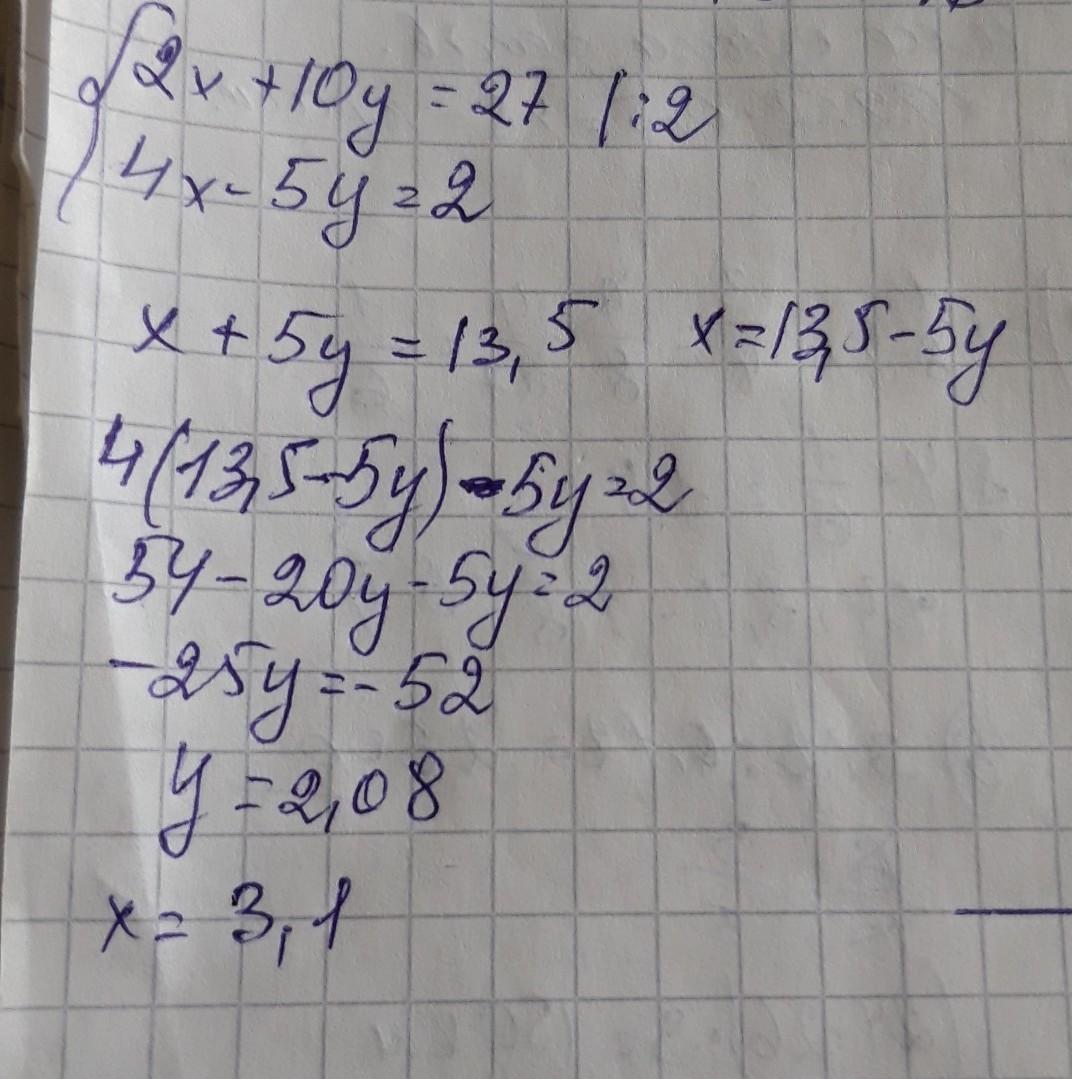 2x + 10y = 27 | : 2
4x - 5y = 2
x + 5y = 13,5 x = 13,5 - 5y
4(13,5 - 5y) - 5y = 2
54 - 20y - 5y = 2
-25y = -52
y = 2,08
x = 3,1